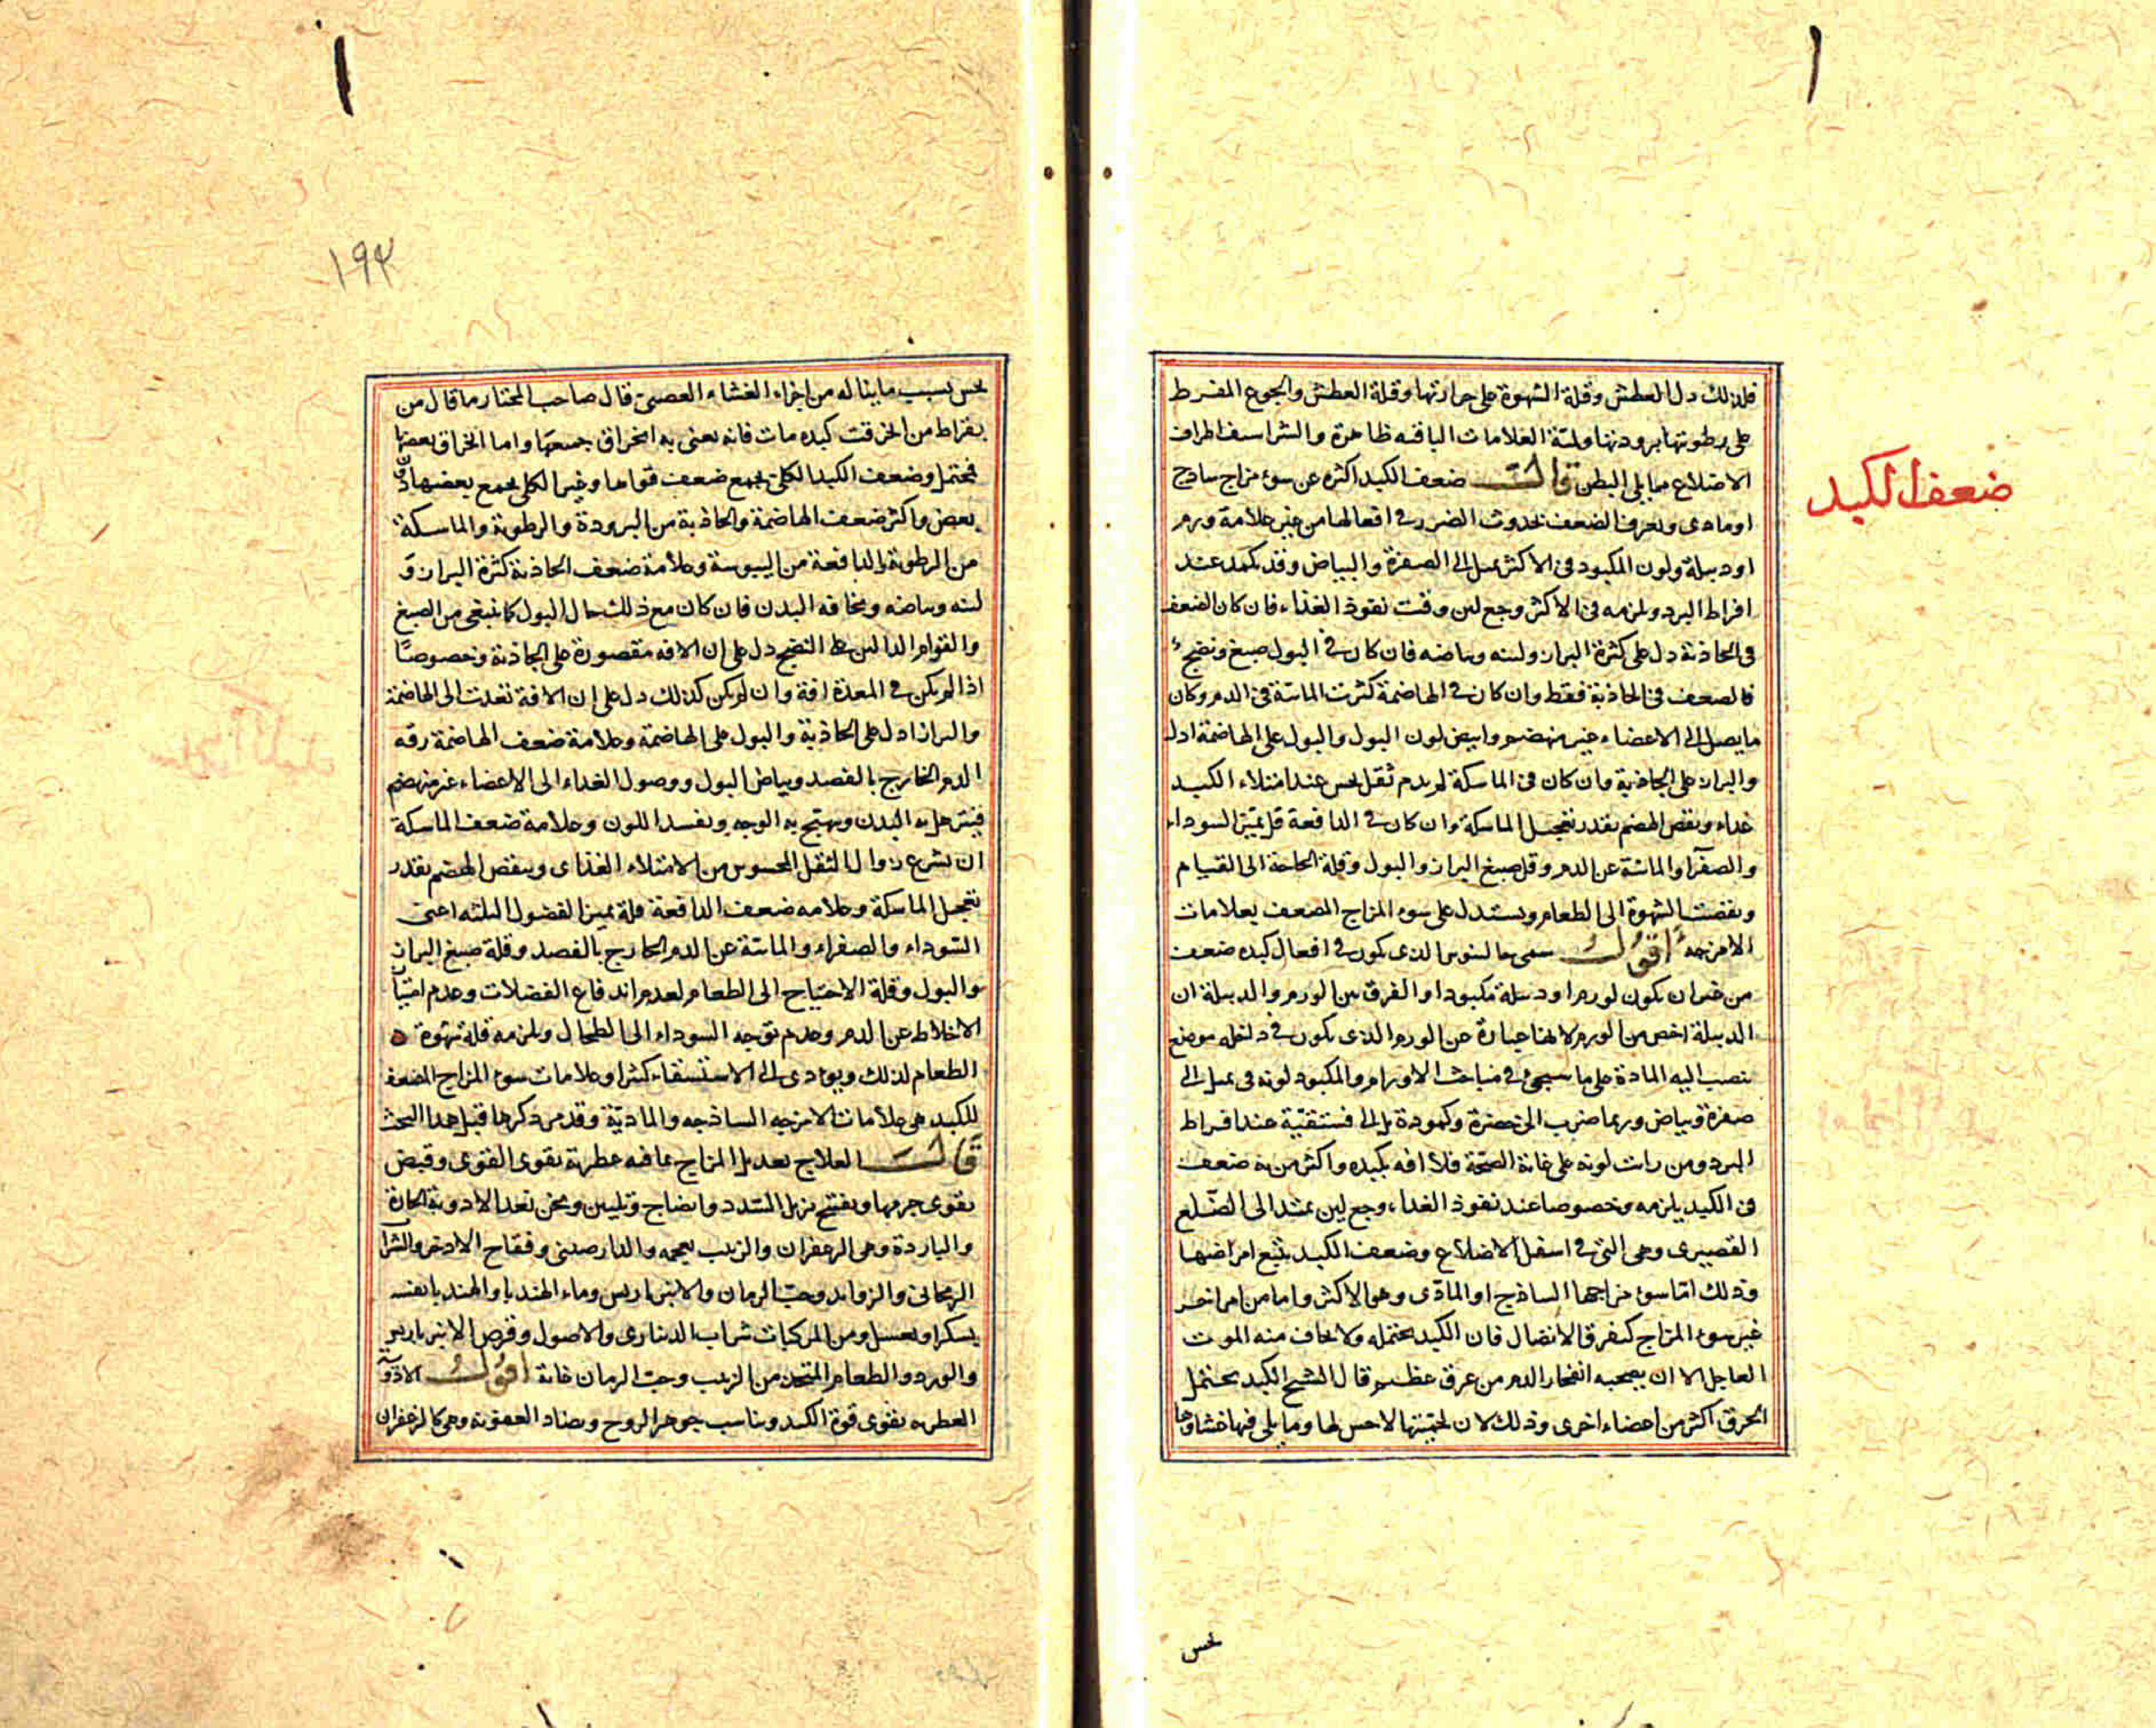 ضعف الكبد
فلذلك دل العطش وقلة الشهوة على حرارتها وقلة العطش والجوع المفرط
على رطوبتها برودتها وليّة العلامات الباقيه ظاهرة والشراسيف اطراف
الاضلاع مما يلى البطن قال ضعف الكبد اكثره عن سوء مزاج ساذج
او مادى ويعرف الضعف بحدوث الضرر فى افعالها من غير علامة ورم
او دبيلة ولون المكبود فى الاكثر يميل الى الصفرة والبياض وقد يكمد عند
افراط البرد ويلزمه فى الاكثر وجع لين وقت نفوذ الغذاء فان كان الضعف
فى الجاذبة دل على كثرة البراز ولينه وبياضه فان كان فى البول صبغ ونضج
فالضعف فى الجاذبة فقط وان كان فى الهاضمة كثرت المائية فى الدم وكان
ما يصل الى الاعضاء غير منهضم وابيض لون البول والبول على الهاضمة ادل
والبراز على الجاذبة وان كان فى الماسكة لم يدم ثقل يحس عند امتلاء الكبد
غذاء ونقص الهضم بقدر تعجيل الماسكة وان كان فى الدافعة قل تميز السوداء
والصفراء والمائية عن الدم وقل صبغ البراز والبول وقلة الحاجة الى القيام
ونقصت الشهوة الى الطعام ويستدل على سوء المزاج المضعف بعلامات
الامزجه اقول سمى جالينوس الذى يكون فى افعال كبده ضعف
من غير ان يكون لورم او دبيلة مكبودا والفرق بين الورم والدبيلة ان
الدبيلة اخص من الورم لانها عبارة عن الورم الذى يكون فى داخله موضع
تنصب اليه المادة على ما سيجئ فى مباحث الاورام والمكبود لونه فى يميل الى
صفرة وبياض وربما ضرب الى خضرة وكمودة بل الى فستقية عند افراط
البرد ومن رات لونه على غاية الصحة فلا افه بكبده واكثر من به ضعف
فى الكبد يلزمه وخصوصا عند نفوذ الغذاء وجع لين يمتد الى الضلع
القصيرى وهى التى فى اسفل الاضلاع وضعف الكبد يتبع امراضها
وذلك اما سوء مزاجها الساذج او المادى وهو الاكثر واما من امراض
غير سوء المزاج كتفرق الاتصال فان الكبد يحتمله ولا يخاف منه الموت
العاجل الا ان يصحبه انفجار الدم من عرق عظيم قال الشيخ الكبد يحتمل
الخرق اكثر من اعضاء اخرى وذلك لان لحميتها لا حس لها وما يلى فيها غشاوها
يحس
١٩٣
يحس بسبب ما يناله من اجزاء الغشاء العصبى قال صاحب المختار ما قال من
بقراط من انخرقت كبده مات فانه يعنى به انخراق جميعها واما انخراق بعضها
فيحتمل وضعف الكبد الكلى يجمع ضعف قواها وغير الكلى يجمع بعضها دون
بعض واكثر ضعف الهاضمة والجاذبة من البرودة والرطوبة والماسكة
من الرطوبة والدافعة من اليبوسة وعلامة ضعف الجاذبة كثرة البراز و
لينه وبياضه ونحافه البدن فان كان مع ذلك حال البول كما ينبغى من الصبغ
والقوام الدالين على النضج دل على ان الافه مقصورة على الجاذبة وخصوصًا
اذا لم يكن فى المعدة افة وان لم يكن كذلك دل على ان الافة تعدت الى الهاضمة
والبراز ادل على الجاذبة والبول على الهاضمة وعلامة ضعف الهاضمة رقه
الدم الخارج بالفصد وبياض البول ووصول الغذاء الى الاعضاء غير منهضم
فيترهل به البدن ويتهيج به الوجه ويفسد اللون وعلامة ضعف الماسكة
ان يسرع زوال الثقل المحسوس من الامتلاء الغذاى وينقص الهضم بقدر
تعجل الماسكة وعلامه ضعف الدافعة قلة تميز الفضول الثلثه اعنى
السّوداء والصفراء والمائية عن الدم الخارج بالفصد وقلة صبغ البراز
والبول وقلة الاحتياج الى الطعام لعدم اندفاع الفضلات وعدم امتياز
الاخلاط عن الدم وعدم توجه السوداء الى الطحال ويلزمه قلة شهوة
الطعام لذلك ويودى الى الاستسقاء كثيرا وعلامات سوء المزاج المضعف
للكبد هى علامات الامزجه الساذجه والمادّية وقد مر ذكرها قبل هذا البحث
قال العلاج تعديل المزاج بما فيه عطرية يقوى القوى وقبض
يقوى جرمها وتفتيح يزيل السّدد وانضاج وتليين ونحن نعد الادوية الحارة
والباردة وهى الزعفران والزبيب بعجمه والدارصينى وفقاح الاذخر والشراب
الريحانى والزوايد وحب الرمان والانبرباريس وماء الهندبا والهندبا نفسه
بسكر او بعسل ومن المركبات شراب الدينارى والاصول وقرص الانبرباريس
والورد والطعام المتخذ من الزبيب وحب الرمان غاية اقول الادوية
العطره يقوى قوة الكبد ويناسب جوهر الروح ويضاد العفونة وهى كالزعفران